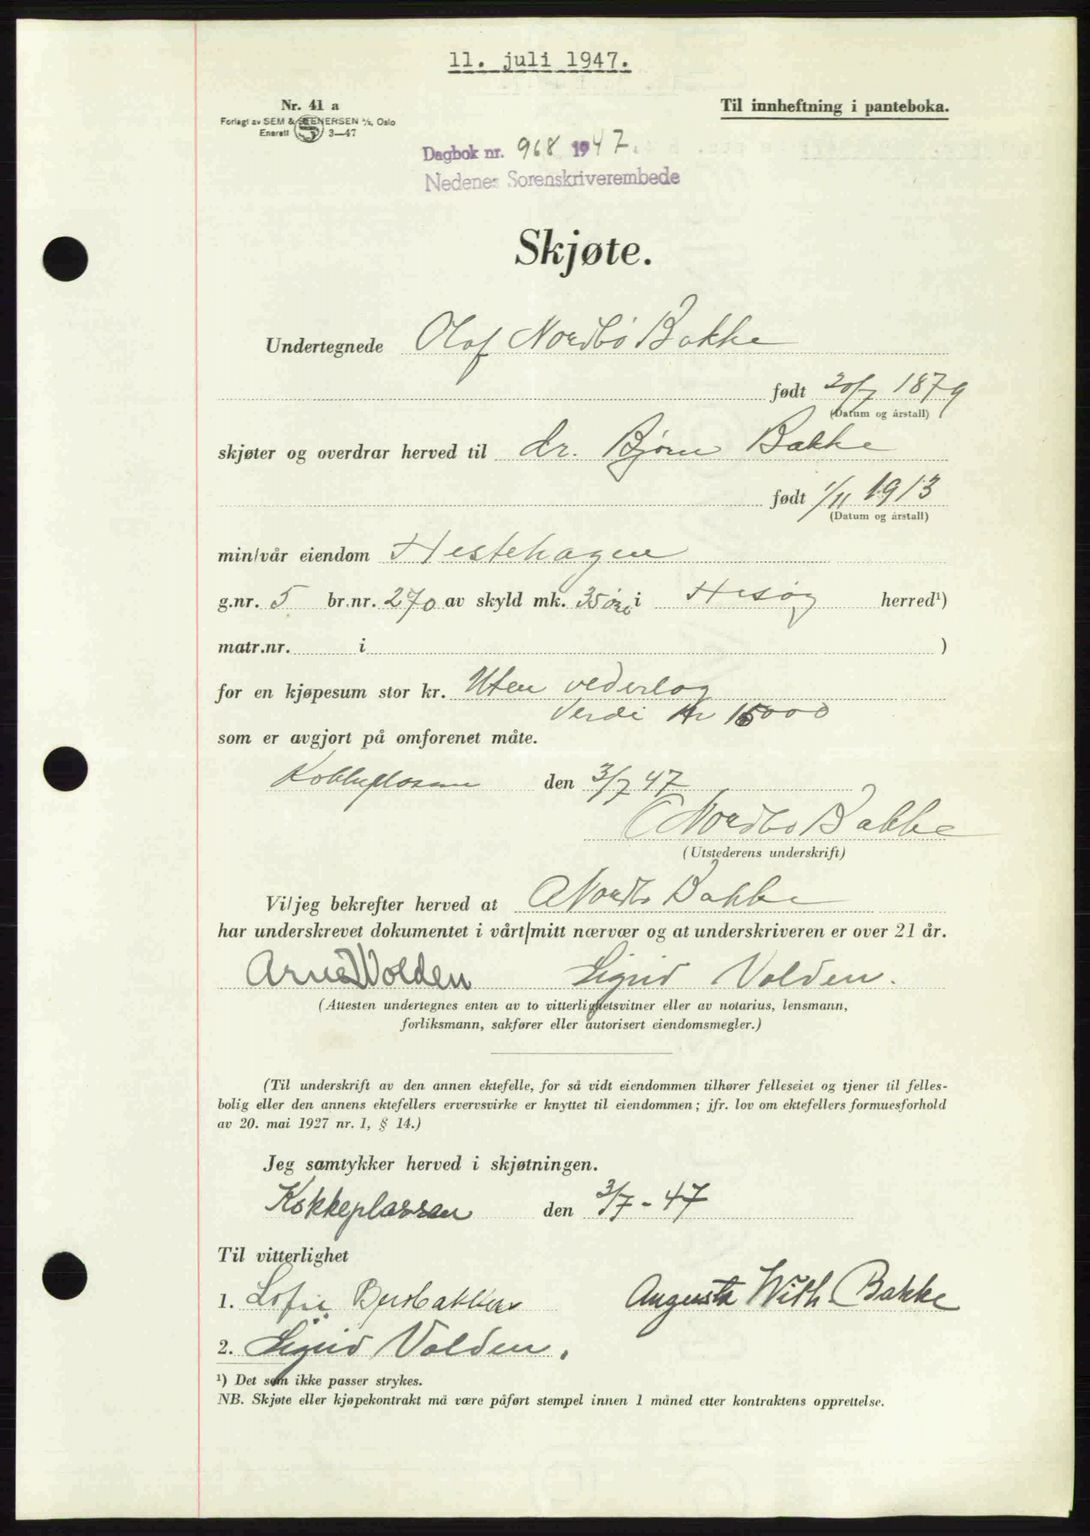 11. juli 1947.
Nr. 41 a
Til innheftning i panteboka.
Forlagt av SEM & STENERSEN A/S, Oslo
Enerett S 3—47
Dagbok nr. 968 1947.
Nedenes Sorenskriverembede
Skjøte.
Undertegnede Olaf Nordbø Bakke
født 20/7 1879
(Datum og årstall)
skjøter og overdrar herved til dr. Bjørn Bakke
født 1/11 1913
(Datum og årstall)
min/vår eiendom Hestehagen
g.nr. 5 br.nr. 270 av skyld mk. 35 øre i Hisøy herred¹)
matr.nr. i )
for en kjøpesum stor kr. Uten vederlag
Verdi kr 15000
som er avgjort på omforenet måte.
Kokkeplassen den 3/7 47
O Nordbø Bakke
(Utstederens underskrift)
Vi/jeg bekrefter herved at O Nordbø Bakke
har underskrevet dokumentet i vårt/mitt nærvær og at underskriveren er over 21 år.
Arne Volden Sigrid Volden.
(Attesten undertegnes enten av to vitterlighetsvitner eller av notarius, lensmann,
forliksmann, sakfører eller autorisert eiendomsmegler.)
(Til underskrift av den annen ektefelle, for så vidt eiendommen tilhører felleseiet og tjener til felles-
bolig eller den annens ektefellers ervervsvirke er knyttet til eiendommen; jfr. lov om ektefellers formuesforhold
av 20. mai 1927 nr. 1, § 14.)
Jeg samtykker herved i skjøtningen.
Kokkeplassen den 3/7 - 47
Til vitterlighet
1. Sofie Augusta With Bakke
2. Sigrid Volden.
¹) Det som ikke passer strykes.
NB. Skjøte eller kjøpekontrakt må være påført stempel innen 1 måned etter kontraktens opprettelse.